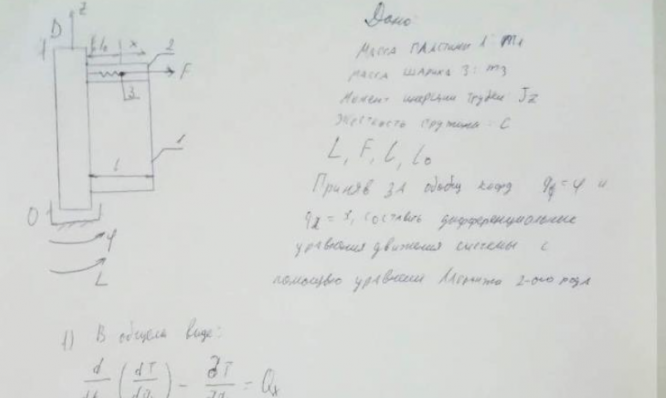 z
D
l₀ x
2
F
3
1
l
O
φ
L
Дано
Масса пластины 1: m₁
масса шарика 3: m₃
Момент инерции трубки: Jz
Жесткость пружины: c
L, F, l, l₀
Приняв за обобщ коорд q₁=φ и
q₂=x, составить дифференциальные
уравнения движения системы с
помощью уравнений Лагранжа 2-ого рода
1) В общем виде:
d/dt (dT/dq) - ∂T/∂q = Qx